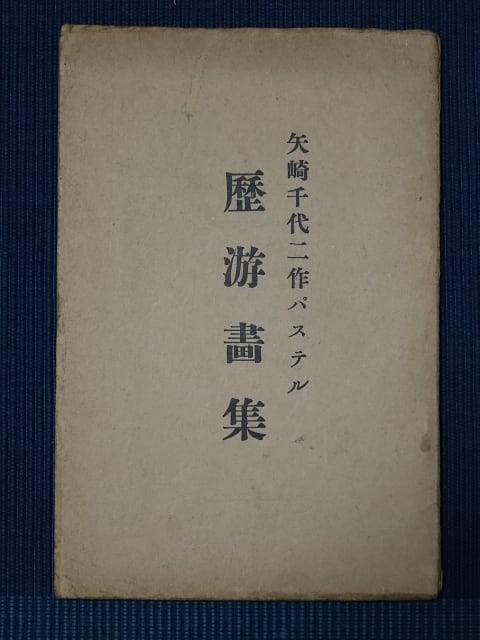 矢崎千代二作パステル
歴游畫集